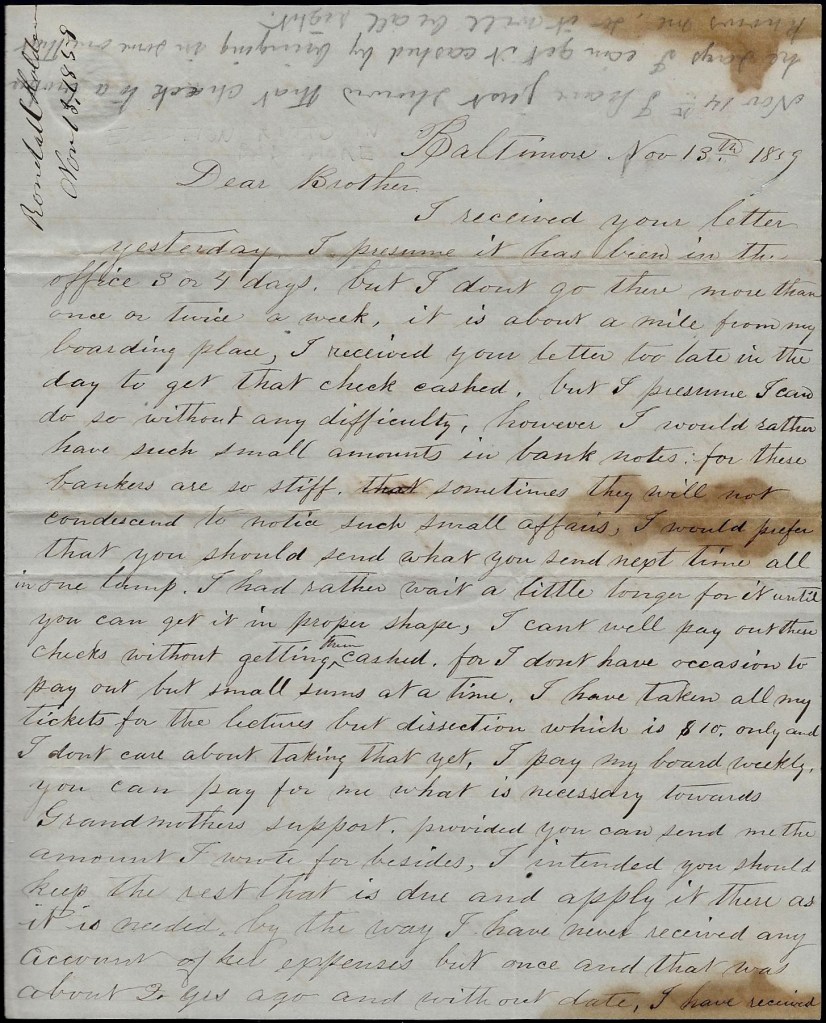 Nov 14th I have just shown that check to a
he says I can get it cashed by bringing in some one that
knows me, so it will be all right.
Randall Holden
Nov 13, 1859
Baltimore Nov 13th. 1859
Dear Brother
I received your letter
yesterday. I presume it has been in the
office 3 or 4 days. but I dont go there more than
once or twice a week, it is about a mile from my
boarding place, I received your letter too late in the
day to get that check cashed, but I presume I can
do so without any difficulty, however I would rather
have such small amounts in bank notes. for these
bankers are so stiff. that sometimes they will not
condescend to notice such small affairs, I would prefer
that you should send what you send next time all
in one lump. I had rather wait a little longer for it until
you can get it in proper shape, I cant well pay out these
checks without getting them cashed. for I dont have occasion to
pay out but small sums at a time. I have taken all my
tickets for the lectures but dissection which is $10. only and
I dont care about taking that yet, I pay my board weekly.
you can pay for me what is necessary towards
Grandmothers support. provided you can send me the
amount I wrote for besides, I intended you should
keep the rest that is due and apply it there as
it is needed. by the way I have never received any
account of her expenses but once and that was
about 2 yrs ago and without date, I have received